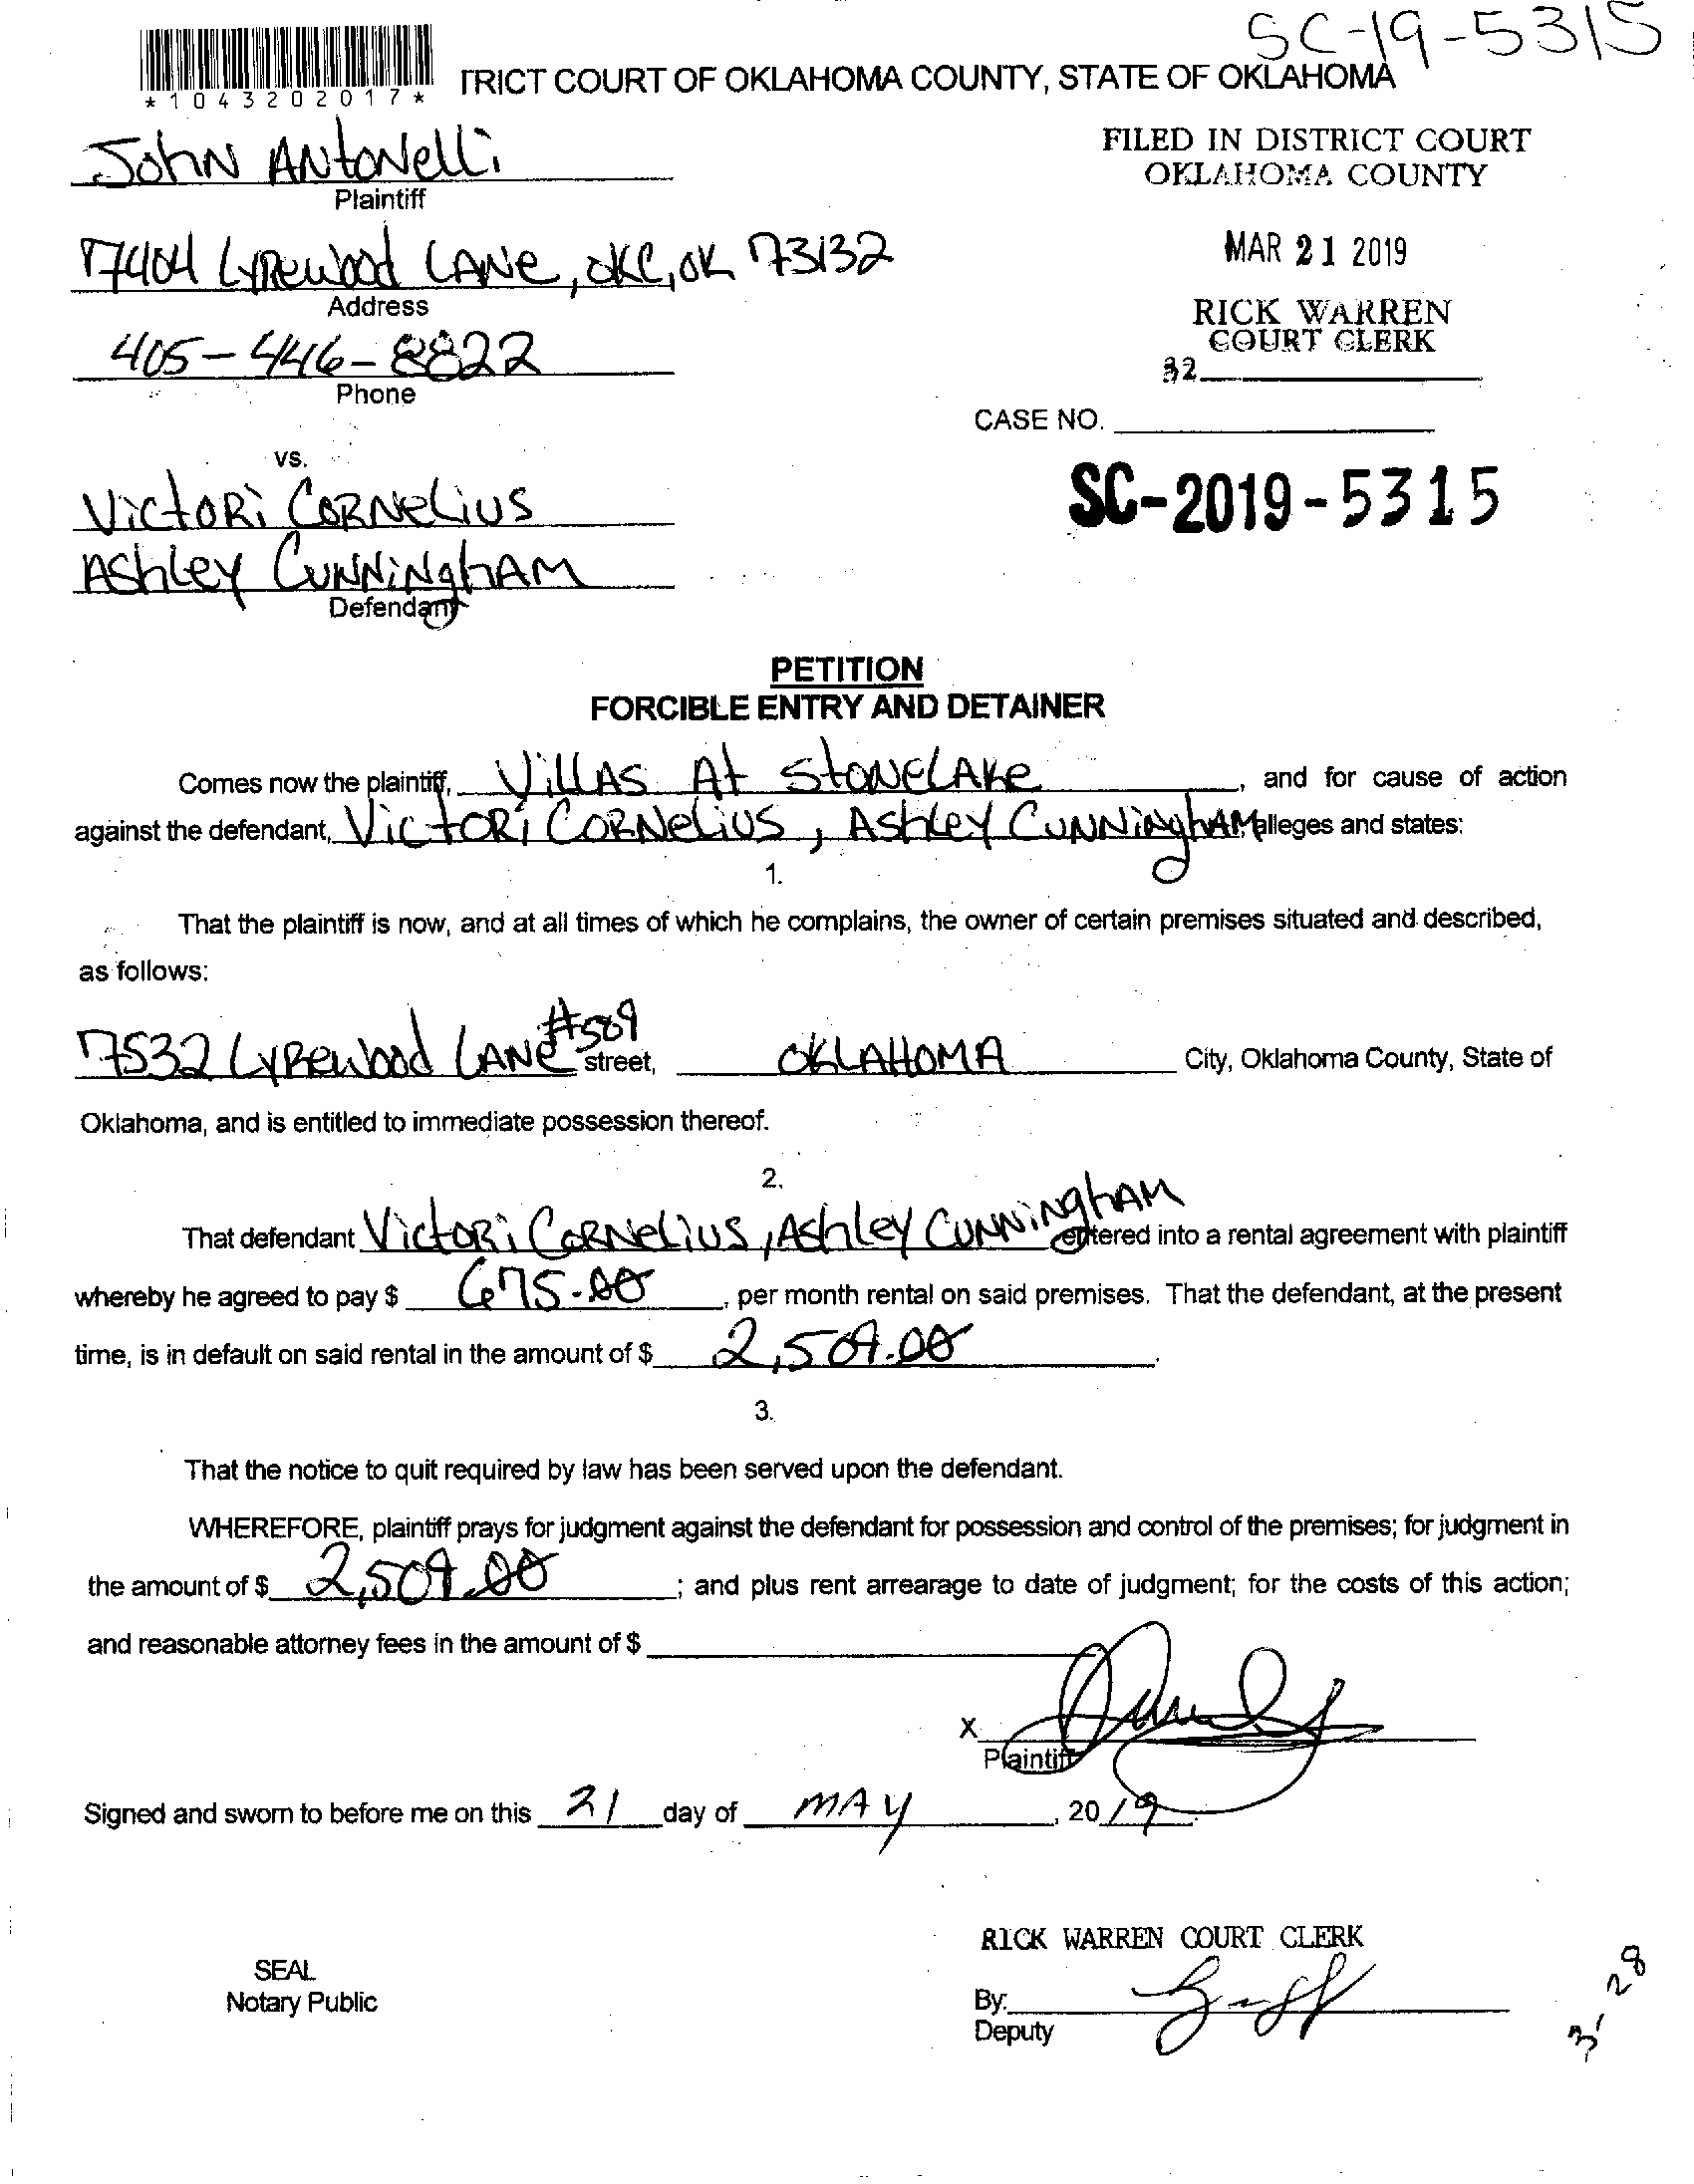 SC-19-5315
*1043202017*
TRICT COURT OF OKLAHOMA COUNTY, STATE OF OKLAHOMA
John Antonelli
Plaintiff
FILED IN DISTRICT COURT
OKLAHOMA COUNTY
7404 Lyrewood Lane, OKC, OK 73132
Address
MAR 21 2019
405-446-8822
Phone
RICK WARREN
COURT CLERK
32
CASE NO.
vs.
Victori Cornelius
SC-2019-5315
Ashley Cunningham
Defendant
PETITION
FORCIBLE ENTRY AND DETAINER
Comes now the plaintiff, Villas At Stonelake, and for cause of action
against the defendant, Victori Cornelius, Ashley Cunningham alleges and states:
1.
That the plaintiff is now, and at all times of which he complains, the owner of certain premises situated and described,
as follows:
7532 Lyrewood Lane #509 street, OKLAHOMA City, Oklahoma County, State of
Oklahoma, and is entitled to immediate possession thereof.
2.
That defendant Victori Cornelius, Ashley Cunningham entered into a rental agreement with plaintiff
whereby he agreed to pay $ 675.00, per month rental on said premises. That the defendant, at the present
time, is in default on said rental in the amount of $ 2,509.00.
3.
That the notice to quit required by law has been served upon the defendant.
WHEREFORE, plaintiff prays for judgment against the defendant for possession and control of the premises; for judgment in
the amount of $ 2,509.00; and plus rent arrearage to date of judgment; for the costs of this action;
and reasonable attorney fees in the amount of $
X
Plaintiff
Signed and sworn to before me on this 21 day of MAY, 2019.
RICK WARREN COURT CLERK
SEAL
Notary Public
By:
Deputy
3-28